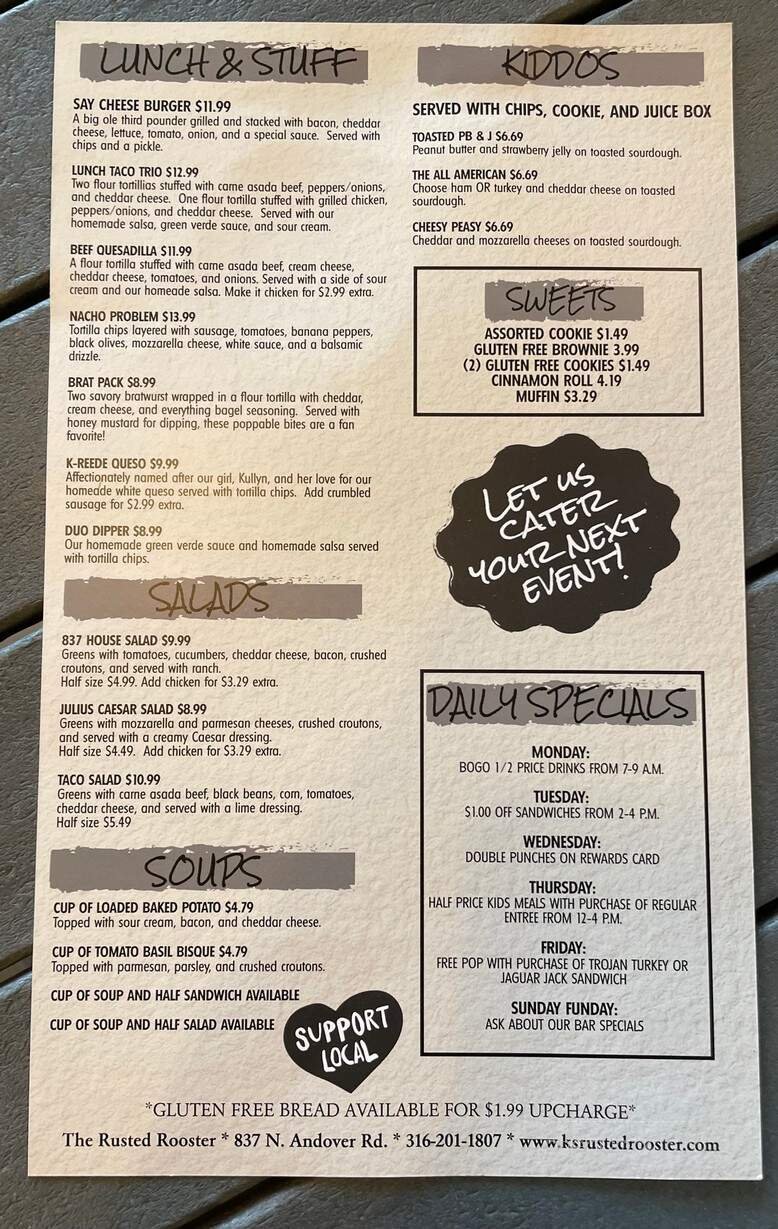 LUNCH & STUFF
SAY CHEESE BURGER $11.99
A big ole third pounder grilled and stacked with bacon, cheddar
cheese, lettuce, tomato, onion, and a special sauce. Served with
chips and a pickle.
LUNCH TACO TRIO $12.99
Two flour tortillias stuffed with carne asada beef, peppers/onions,
and cheddar cheese. One flour tortilla stuffed with grilled chicken,
peppers/onions, and cheddar cheese. Served with our
homemade salsa, green verde sauce, and sour cream.
BEEF QUESADILLA $11.99
A flour tortilla stuffed with carne asada beef, cream cheese,
cheddar cheese, tomatoes, and onions. Served with a side of sour
cream and our homeade salsa. Make it chicken for $2.99 extra.
NACHO PROBLEM $13.99
Tortilla chips layered with sausage, tomatoes, banana peppers,
black olives, mozzarella cheese, white sauce, and a balsamic
drizzle.
BRAT PACK $8.99
Two savory bratwurst wrapped in a flour tortilla with cheddar,
cream cheese, and everything bagel seasoning. Served with
honey mustard for dipping, these poppable bites are a fan
favorite!
K-REEDE QUESO $9.99
Affectionately named after our girl, Kullyn, and her love for our
homeade white queso served with tortilla chips. Add crumbled
sausage for $2.99 extra.
DUO DIPPER $8.99
Our homemade green verde sauce and homemade salsa served
with tortilla chips.
SALADS
837 HOUSE SALAD $9.99
Greens with tomatoes, cucumbers, cheddar cheese, bacon, crushed
croutons, and served with ranch.
Half size $4.99. Add chicken for $3.29 extra.
JULIUS CAESAR SALAD $8.99
Greens with mozzarella and parmesan cheeses, crushed croutons,
and served with a creamy Caesar dressing.
Half size $4.49. Add chicken for $3.29 extra.
TACO SALAD $10.99
Greens with carne asada beef, black beans, corn, tomatoes,
cheddar cheese, and served with a lime dressing.
Half size $5.49
SOUPS
CUP OF LOADED BAKED POTATO $4.79
Topped with sour cream, bacon, and cheddar cheese.
CUP OF TOMATO BASIL BISQUE $4.79
Topped with parmesan, parsley, and crushed croutons.
CUP OF SOUP AND HALF SANDWICH AVAILABLE
CUP OF SOUP AND HALF SALAD AVAILABLE
SUPPORT
LOCAL
KIDDOS
SERVED WITH CHIPS, COOKIE, AND JUICE BOX
TOASTED PB & J $6.69
Peanut butter and strawberry jelly on toasted sourdough.
THE ALL AMERICAN $6.69
Choose ham OR turkey and cheddar cheese on toasted
sourdough.
CHEESY PEASY $6.69
Cheddar and mozzarella cheeses on toasted sourdough.
SWEETS
ASSORTED COOKIE $1.49
GLUTEN FREE BROWNIE 3.99
(2) GLUTEN FREE COOKIES $1.49
CINNAMON ROLL 4.19
MUFFIN $3.29
LET US
CATER
YOUR NEXT
EVENT!
DAILY SPECIALS
MONDAY:
BOGO 1/2 PRICE DRINKS FROM 7-9 A.M.
TUESDAY:
$1.00 OFF SANDWICHES FROM 2-4 P.M.
WEDNESDAY:
DOUBLE PUNCHES ON REWARDS CARD
THURSDAY:
HALF PRICE KIDS MEALS WITH PURCHASE OF REGULAR
ENTREE FROM 12-4 P.M.
FRIDAY:
FREE POP WITH PURCHASE OF TROJAN TURKEY OR
JAGUAR JACK SANDWICH
SUNDAY FUNDAY:
ASK ABOUT OUR BAR SPECIALS
*GLUTEN FREE BREAD AVAILABLE FOR $1.99 UPCHARGE*
The Rusted Rooster * 837 N. Andover Rd. * 316-201-1807 * www.ksrustedrooster.com